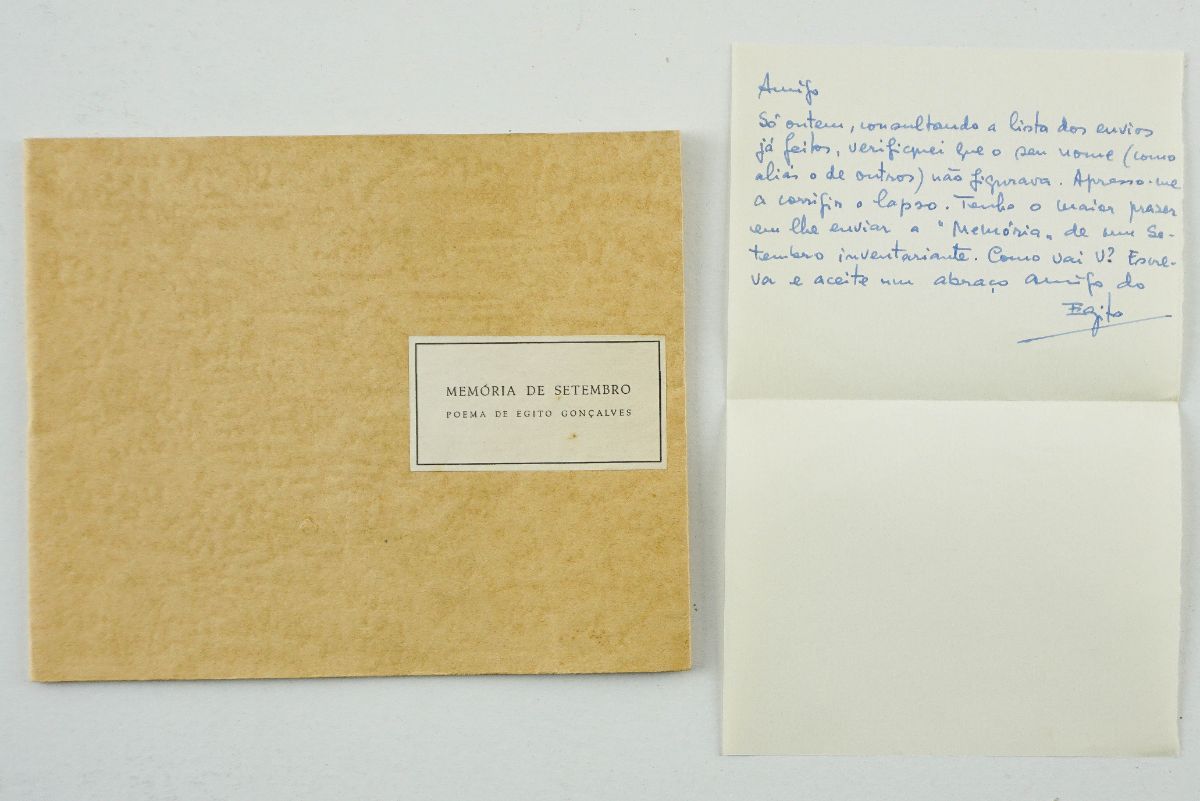 MEMÓRIA DE SETEMBRO
POEMA DE EGITO GONÇALVES
Amigo
Só ontem, consultando a lista dos envios
já feitos, verifiquei que o seu nome (como
aliás o de outros) não figurava. Apresso-me
a corrigir o lapso. Tenho o maior prazer
em lhe enviar a "Memória" de um Se-
tembro inventariante. Como vai V? Escre-
va e aceite um abraço amigo do
Egito